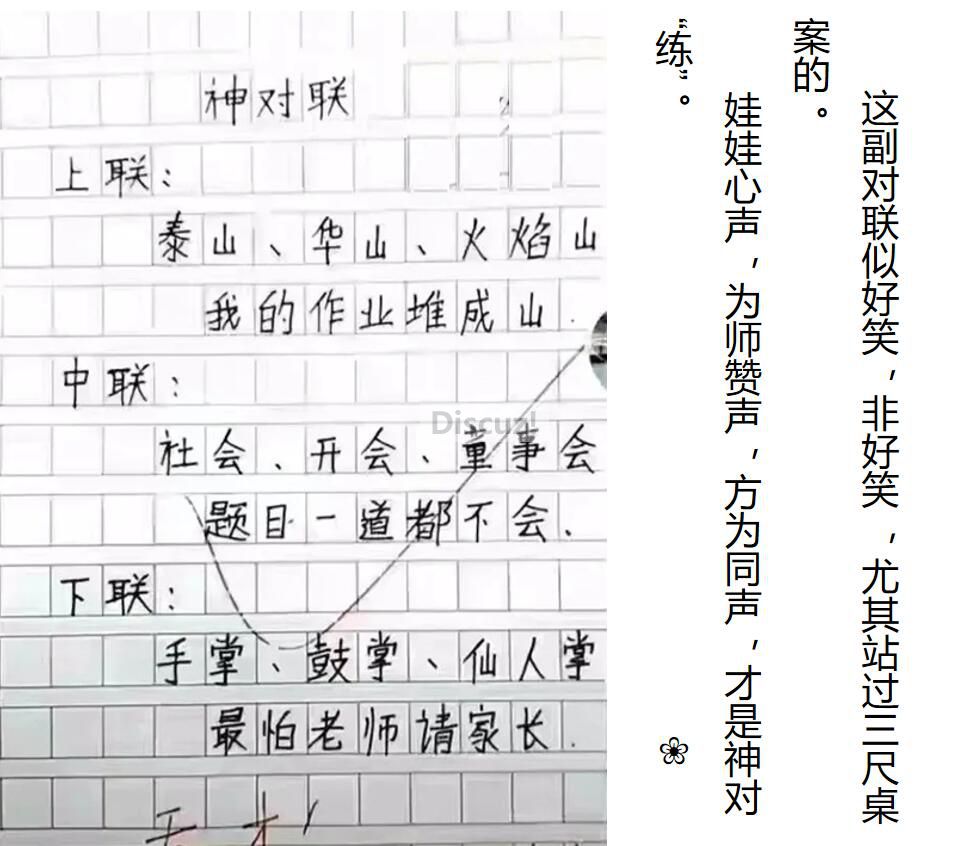 神对联
上联：
泰山、华山、火焰山
我的作业堆成山.
中联：
社会、开会、董事会
Discuz!
题目一道都不会、
下联：
手掌、鼓掌、仙人掌
最怕老师请家长.
天才！
这副对联似好笑，非好笑，尤其站过三尺桌
案的。
娃娃心声，为师赞声，方为同声，才是神对
“练”。